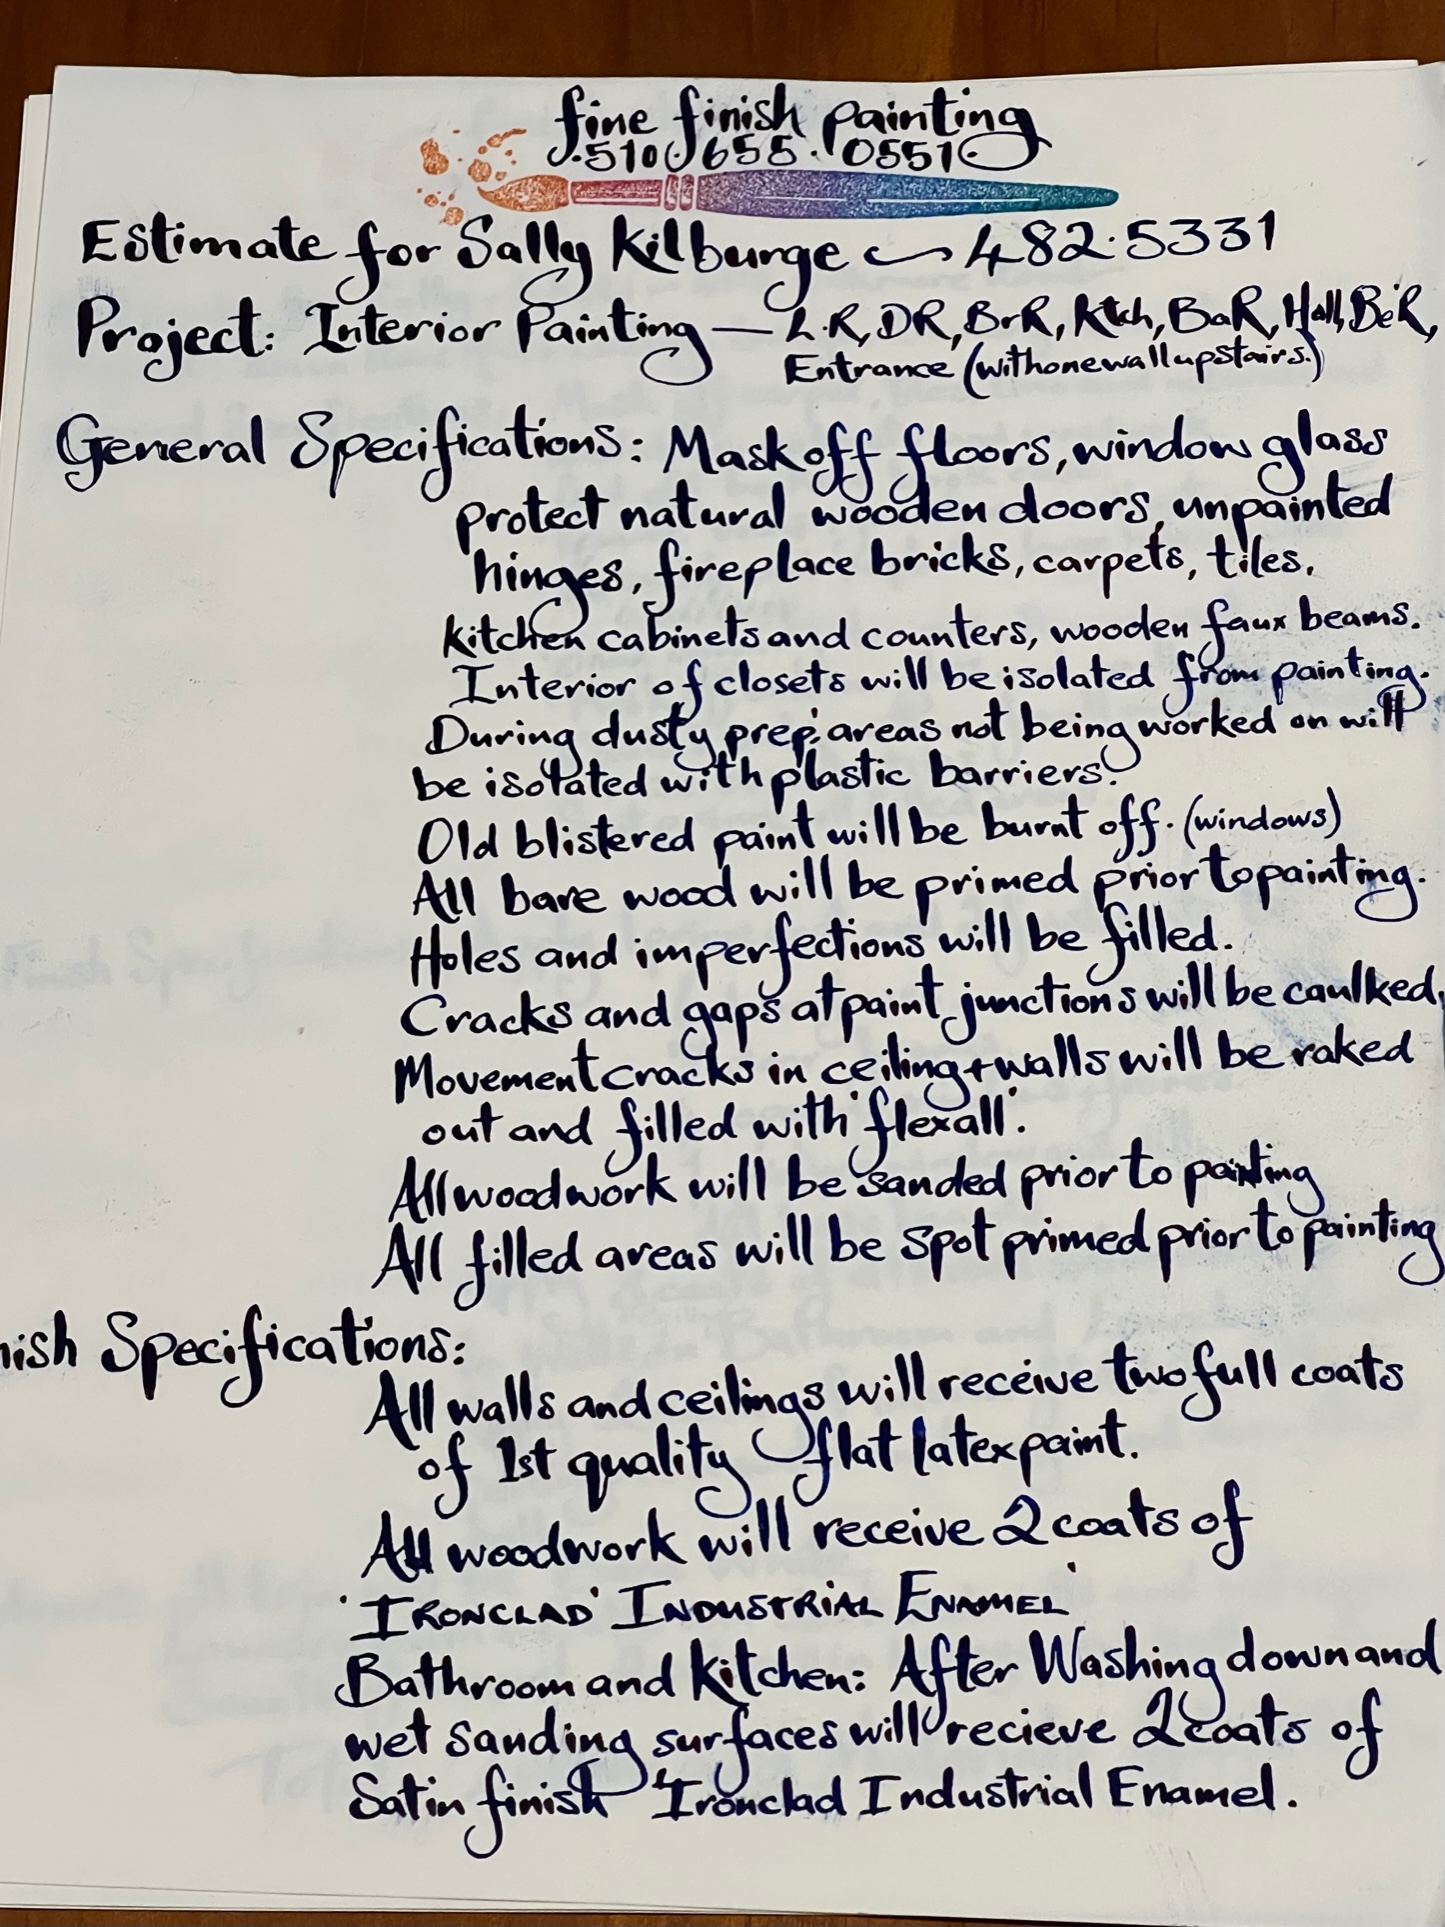 fine finish painting
510.655.0551
Estimate for Sally Kilburge ~ 482.5331
Project: Interior Painting — L.R, DR, BrR, Kitch, BaR, Hall, BeR,
Entrance (with one wall upstairs.)
General Specifications: Mask off floors, window glass
protect natural wooden doors, unpainted
hinges, fireplace bricks, carpets, tiles.
Kitchen cabinets and counters, wooden faux beams.
Interior of closets will be isolated from painting.
During dusty prep: areas not being worked on will
be isolated with plastic barriers.
Old blistered paint will be burnt off. (windows)
All bare wood will be primed prior to painting.
Holes and imperfections will be filled.
Cracks and gaps at paint junctions will be caulked.
Movement cracks in ceiling + walls will be raked
out and filled with 'flexall'.
All woodwork will be sanded prior to painting
All filled areas will be spot primed prior to painting
nish Specifications:
All walls and ceilings will receive two full coats
of 1st quality flat latex paint.
All woodwork will receive 2 coats of
'IRONCLAD' INDUSTRIAL ENAMEL'
Bathroom and Kitchen: After Washing down and
wet sanding surfaces will recieve 2 coats of
Satin finish 'Ironclad Industrial Enamel.